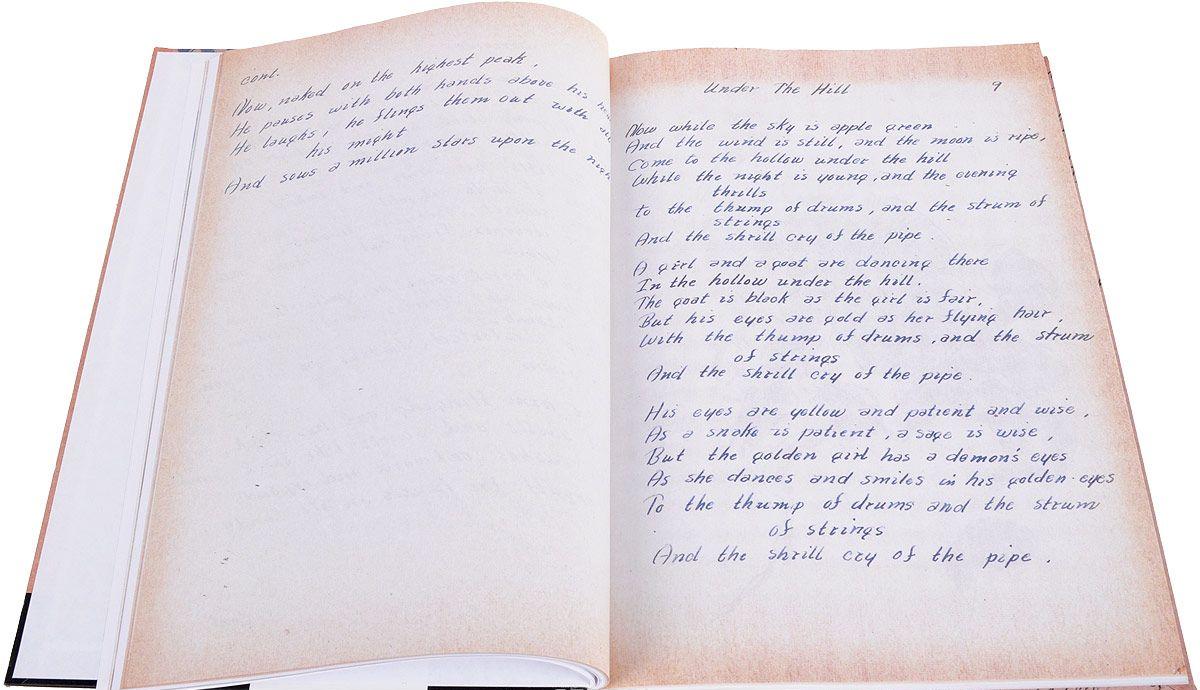 cont.
Now, naked on the highest peak,
He pauses with both hands above his
He laughs, he flings them out with
his might
And sows a million stars upon the
Under The Hill
9
Now while the sky is apple green
And the wind is still, and the moon is ripe,
Come to the hollow under the hill
While the night is young, and the evening
thrills
to the thump of drums, and the strum of
strings
And the shrill cry of the pipe.
A girl and a goat are dancing there
In the hollow under the hill.
The goat is black as the girl is fair,
But his eyes are gold as her flying hair,
With the thump of drums, and the strum
of strings
And the shrill cry of the pipe.
His eyes are yellow and patient and wise,
As a snake is patient, a sage is wise,
But the golden girl has a demon's eyes
As she dances and smiles in his golden eyes
To the thump of drums and the strum
of strings
And the shrill cry of the pipe.